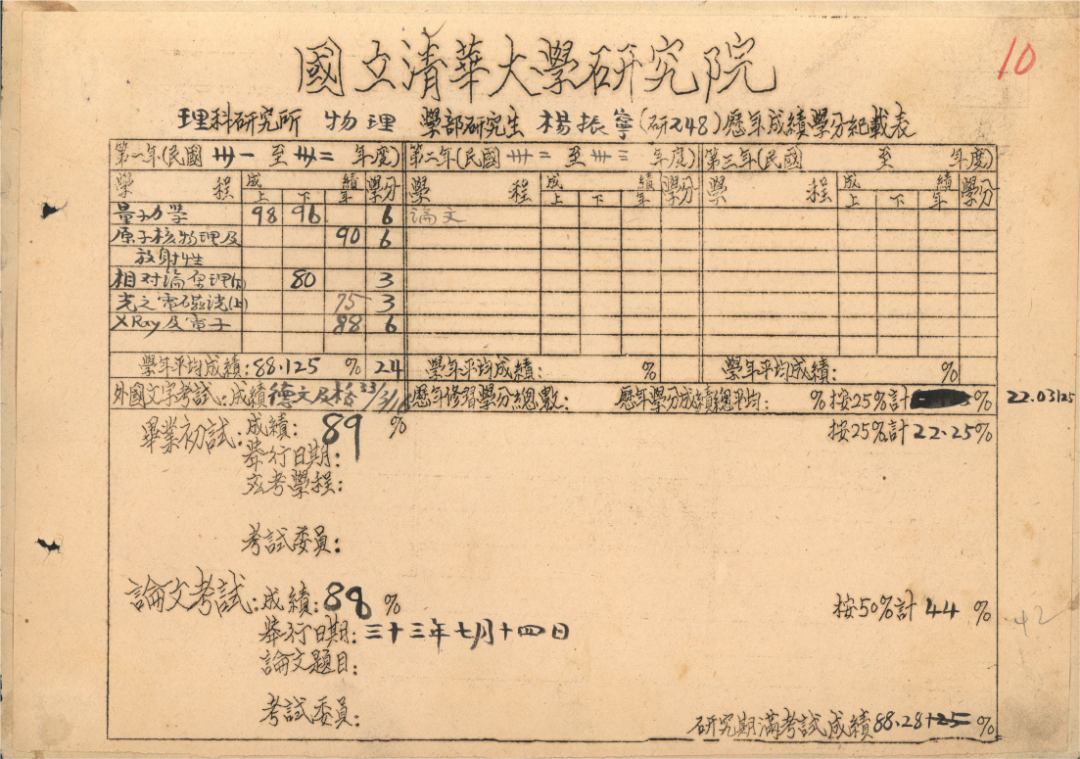 國立清華大學研究院
10
理科研究所 物理 學部研究生 楊振寧(研248)歷年成績學分紀載表
第一年(民國 卅一 至 卅二 年度) 第二年(民國 卅二 至 卅三 年度) 第三年(民國 至 年度)
學程 成績 上 下 年 學分 學程 成績 上 下 年 學分 學程 成績 上 下 年 學分
量子力學 98 96 6 論文
原子核物理及 90 6
放射性
相对論原理(下) 80 3
光之電磁说(上) 75 3
X Ray及電子 88 6
學年平均成績:88.125 % 24 學年平均成績: % 學年平均成績: %
外國文字考試:成績 德文及格 33/3/1 歷年修習學分總數: 歷年學分成績總平均: % 按25%計 % 22.03125
畢業初試:成績:89 % 按25%計22.25%
舉行日期:
考學程:
考試委員:
論文考試:成績:88 % 按50%計 44 % 42
舉行日期:三十三年七月十四日
論文題目:
考試委員:
研究期滿考試成績88.28125 %